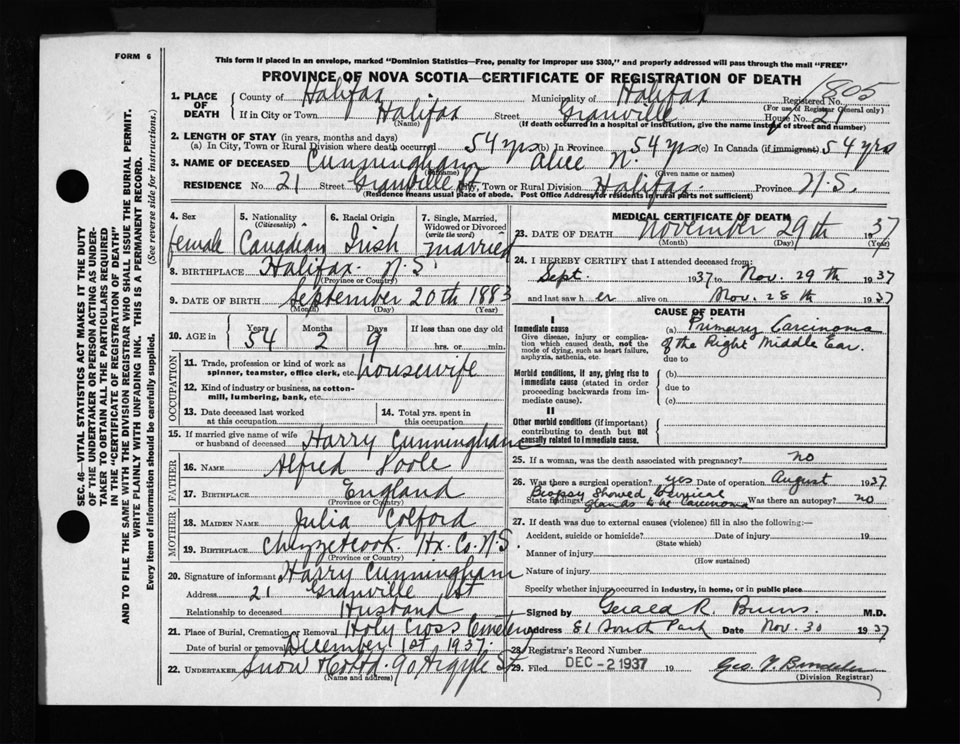 FORM 6
This form if placed in an envelope, marked "Dominion Statistics—Free, penalty for improper use $300," and properly addressed will pass through the mail "FREE"
PROVINCE OF NOVA SCOTIA—CERTIFICATE OF REGISTRATION OF DEATH
1805
1. PLACE OF DEATH { County of Halifax Municipality of Halifax Registered No.
(For use of Registrar General only)
If in City or Town Halifax Street Granville House No. 21
(Name) (If death occurred in a hospital or institution, give the name instead of street and number)
2. LENGTH OF STAY (in years, months and days)
(a) In City, Town or Rural Division where death occurred 54 yrs (b) In Province 54 yrs (c) In Canada (if immigrant) 54 yrs
3. NAME OF DECEASED Cunningham Alice N.
(Surname) (Given name or names)
RESIDENCE No. 21 Street Granville St City, Town or Rural Division Halifax Province N.S
(Residence means usual place of abode. Post Office Address for residents in rural parts not sufficient)
4. Sex female
5. Nationality (Citizenship) Canadian
6. Racial Origin Irish
7. Single, Married, Widowed or Divorced (write the word) married
8. BIRTHPLACE Halifax N.S.
(Province or Country)
9. DATE OF BIRTH September 20th 1883
(Month) (Day) (Year)
10. AGE in Years 54 Months 2 Days 9 If less than one day old hrs. or min.
OCCUPATION
11. Trade, profession or kind of work as spinner, teamster, office clerk, etc. housewife
12. Kind of industry or business, as cotton-mill, lumbering, bank, etc.
13. Date deceased last worked at this occupation
14. Total yrs. spent in this occupation
15. If married give name of wife or husband of deceased Harry Cunningham
FATHER
16. NAME Alfred
17. BIRTHPLACE England
(Province or Country)
MOTHER
18. MAIDEN NAME Julia Colford
19. BIRTHPLACE Chezzetcook. Hx. Co. N.S.
(Province or Country)
20. Signature of informant Harry Cunningham
Address 21 Granville St
Relationship to deceased Husband
21. Place of Burial, Cremation or Removal Holy Cross Cemetery
Date of burial or removal December 1st 1937.
22. UNDERTAKER Snow & Co Ltd. 90 Argyle St.
(Name and address)
MEDICAL CERTIFICATE OF DEATH
23. DATE OF DEATH November 29th 1937
(Month) (Day) (Year)
24. I HEREBY CERTIFY that I attended deceased from:
Sept. 1937 to Nov. 29th 1937
and last saw h er alive on Nov. 28th 1937
CAUSE OF DEATH
I
Immediate cause
Give disease, injury or complication which caused death, not the mode of dying, such as heart failure, asphyxia, asthenia, etc.
(a) Primary Carcinoma
of the Right Middle Ear.
due to
Morbid conditions, if any, giving rise to immediate cause (stated in order proceeding backwards from immediate cause).
(b)
due to
(c)
II
Other morbid conditions (if important) contributing to death but not causally related to immediate cause.
25. If a woman, was the death associated with pregnancy? no
26. Was there a surgical operation? yes Date of operation August 1937
State findings Biopsy Showed Cervical
glands to be Carcinoma Was there an autopsy? no
27. If death was due to external causes (violence) fill in also the following:—
Accident, suicide or homicide? Date of injury 19
(State which)
Manner of injury
(How sustained)
Nature of injury
Specify whether injury occurred in industry, in home, or in public place
Signed by Gerald R. Burns. M.D.
Address 81 South Park Date Nov. 30 1937
28. Registrar's Record Number
29. Filed DEC - 2 1937 19
(Division Registrar)
SEC. 46—VITAL STATISTICS ACT MAKES IT THE DUTY
OF THE UNDERTAKER OR PERSON ACTING AS UNDER-
TAKER TO OBTAIN ALL THE PARTICULARS REQUIRED
IN THE "CERTIFICATE OF REGISTRATION OF DEATH"
AND TO FILE THE SAME WITH THE DIVISION REGISTRAR WHO SHALL ISSUE THE BURIAL PERMIT.
WRITE PLAINLY WITH UNFADING INK. THIS IS A PERMANENT RECORD.
Every item of information should be carefully supplied. (See reverse side for instructions.)